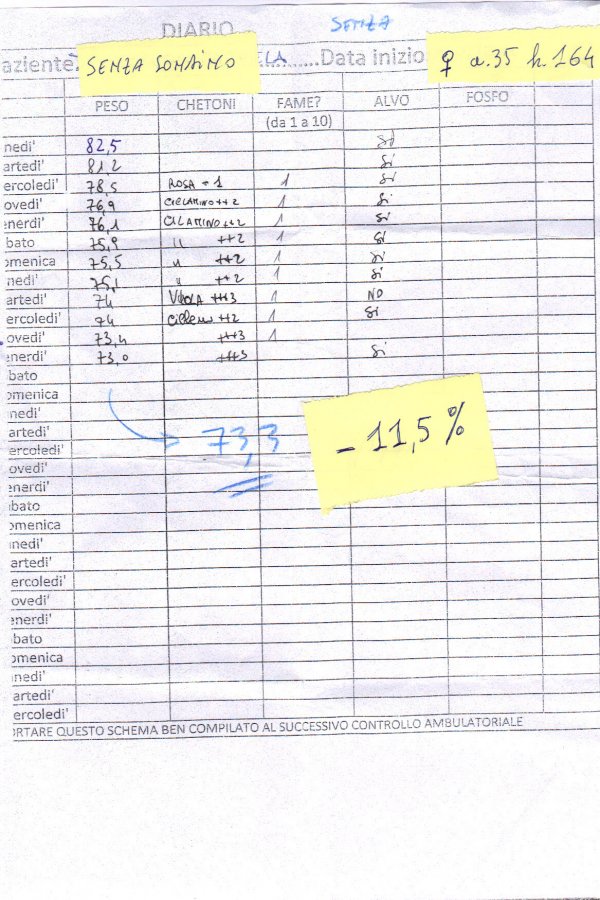 DIARIO SENZA
aziente. SENZA SONDINO ELA ......Data inizio ♀ a.35 h.164
PESO CHETONI FAME? ALVO FOSFO
(da 1 a 10)
nedi' 82,5 SI
artedi' 81,2 Si
ercoledi' 78,5 ROSA = 1 1 Si
ovedi' 76,9 CICLAMINO ++2 1 Si
enerdi' 76,1 CICLAMINO ++2 1 Si
bato 75,9 " ++2 1 Si
omenica 75,5 " ++2 1 Si
nedi' 75,1 " ++2 1 Si
artedi' 74 VIOLA +++3 1 NO
ercoledi' 74 ++2 1 Si
ovedi' 73,4 +++3 1
enerdi' 73,0 +++3 Si
bato
omenica
nedi'
artedi' 73,3 - 11,5 %
ercoledi'
ovedi'
enerdi'
bato
omenica
nedi'
artedi'
ercoledi'
ovedi'
enerdi'
bato
omenica
nedi'
artedi'
ercoledi'
ORTARE QUESTO SCHEMA BEN COMPILATO AL SUCCESSIVO CONTROLLO AMBULATORIALE